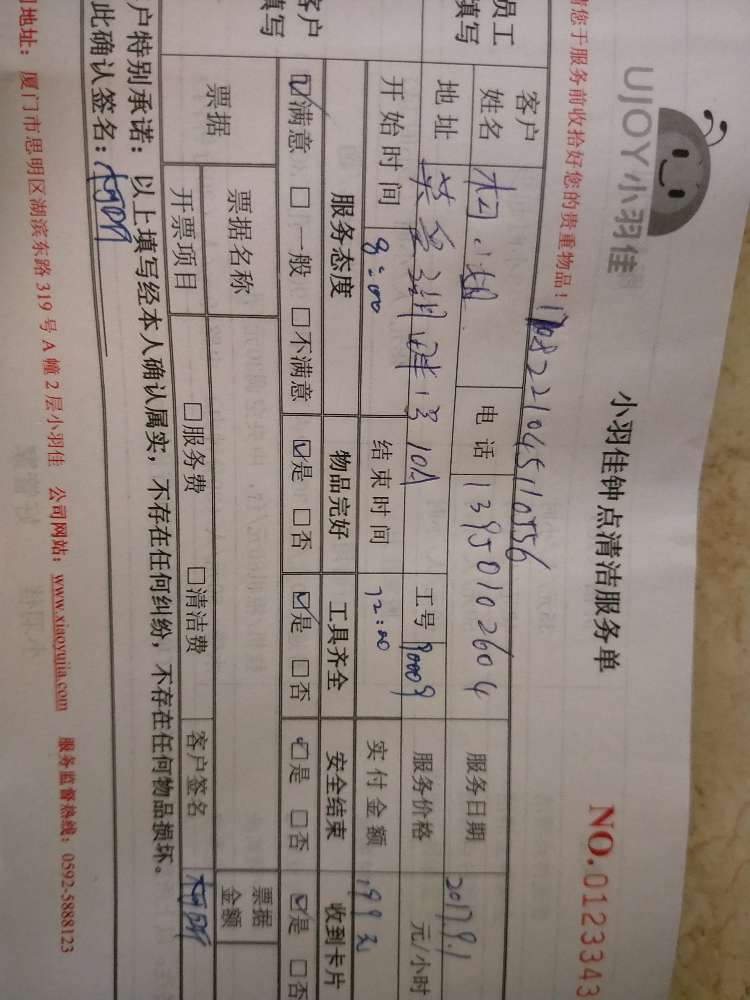 UJOY小羽佳
小羽佳钟点清洁服务单
NO.0123343
您于服务前收拾好您的贵重物品!
170822104510556
员工填写
客户姓名
电话 13950102604
服务日期 2017.9.1
地址
10A
工号 90009
服务价格 元/小时
开始时间 8:00
结束时间 12:00
实付金额 199元
客户填写
服务态度 物品完好 工具齐全 安全结束 收到卡片
☑满意 □一般 □不满意 ☑是 □否 ☑是 □否 ☑是 □否 ☑是 □否
票据
票据名称
票据金额
开票项目 □服务费 □清洁费
客户签名
户特别承诺:以上填写经本人确认属实,不存在任何纠纷,不存在任何物品损坏。
此确认签名:
地址:厦门市思明区湖滨东路319号A幢2层小羽佳 公司网站:www.xiaoyujia.com 服务监督热线:0592-5888123